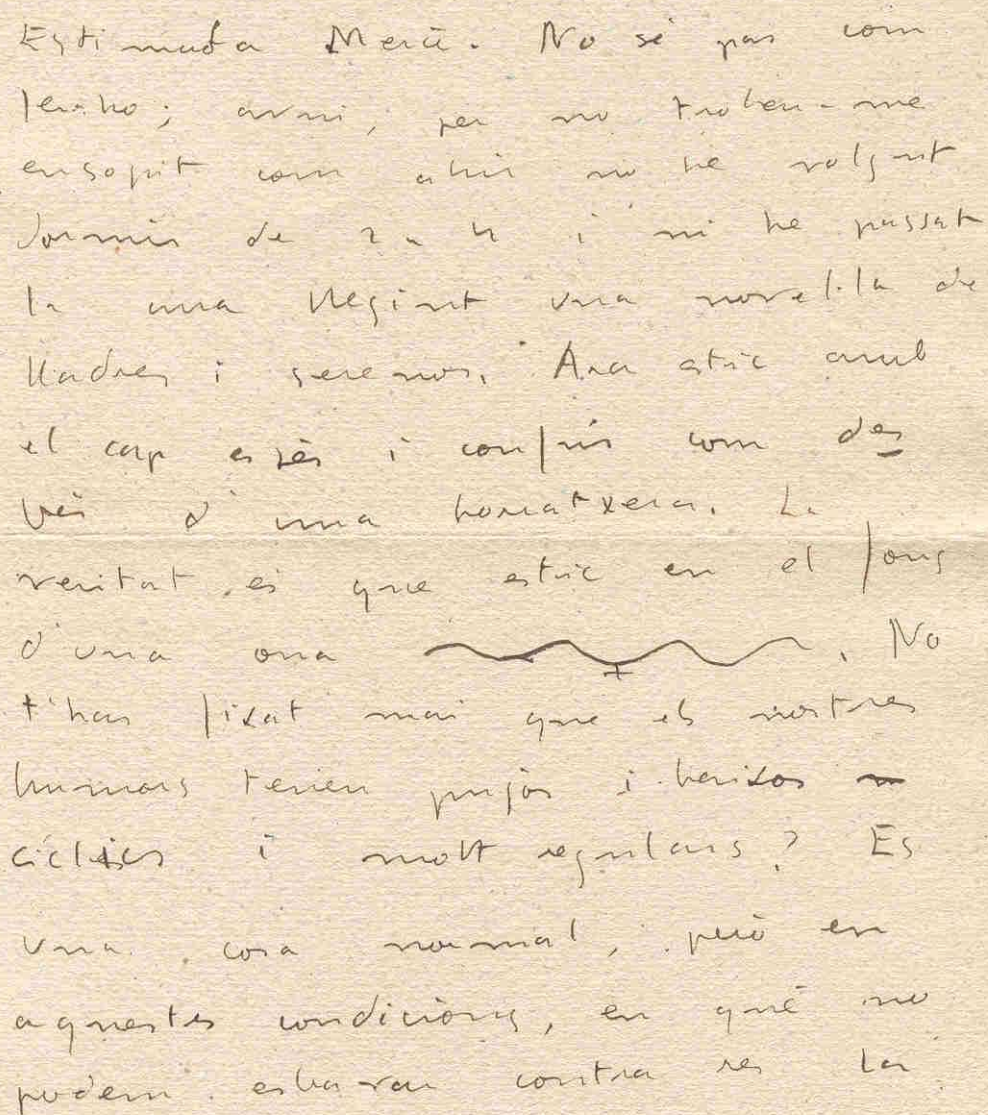 Estimada Mercè. No sé pas com
fer-ho; avui, per no troben-me
ensopit com ahir no he volgut
dormir de 2 a 4 i m'he passat
la una llegint una novel·la de
lladres i serenos. Ara estic amb
el cap espès i confús com des
prés d'una borratxera. La
veritat és que estic en el fons
d'una ona . No
t'has fixat mai que els nostres
humors tenien pujos i baixos
cíclics i molt regulars? Es
una cosa normal, però en
aquestes condicions, en què no
podem esbravar contra res la